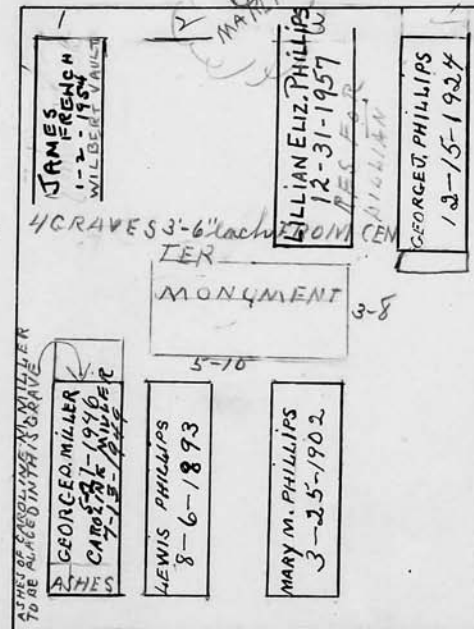 JAMES
FRENCH
1-2-1954
WILBERT VAULT
LILLIAN ELIZ. PHILLIPS
12-31-1957
RES FOR
LILLIAN
GEORGE J. PHILLIPS
12-15-1924
4 GRAVES 3'-6" each FROM CEN
TER
MONUMENT
3-8
5-10
ASHES OF CAROLINE M. MILLER
TO BE PLACED IN THIS GRAVE
GEORGE D. MILLER
1946
CAROLINE MILLER
ASHES
LEWIS PHILLIPS
8-6-1893
MARY M. PHILLIPS
3-25-1902